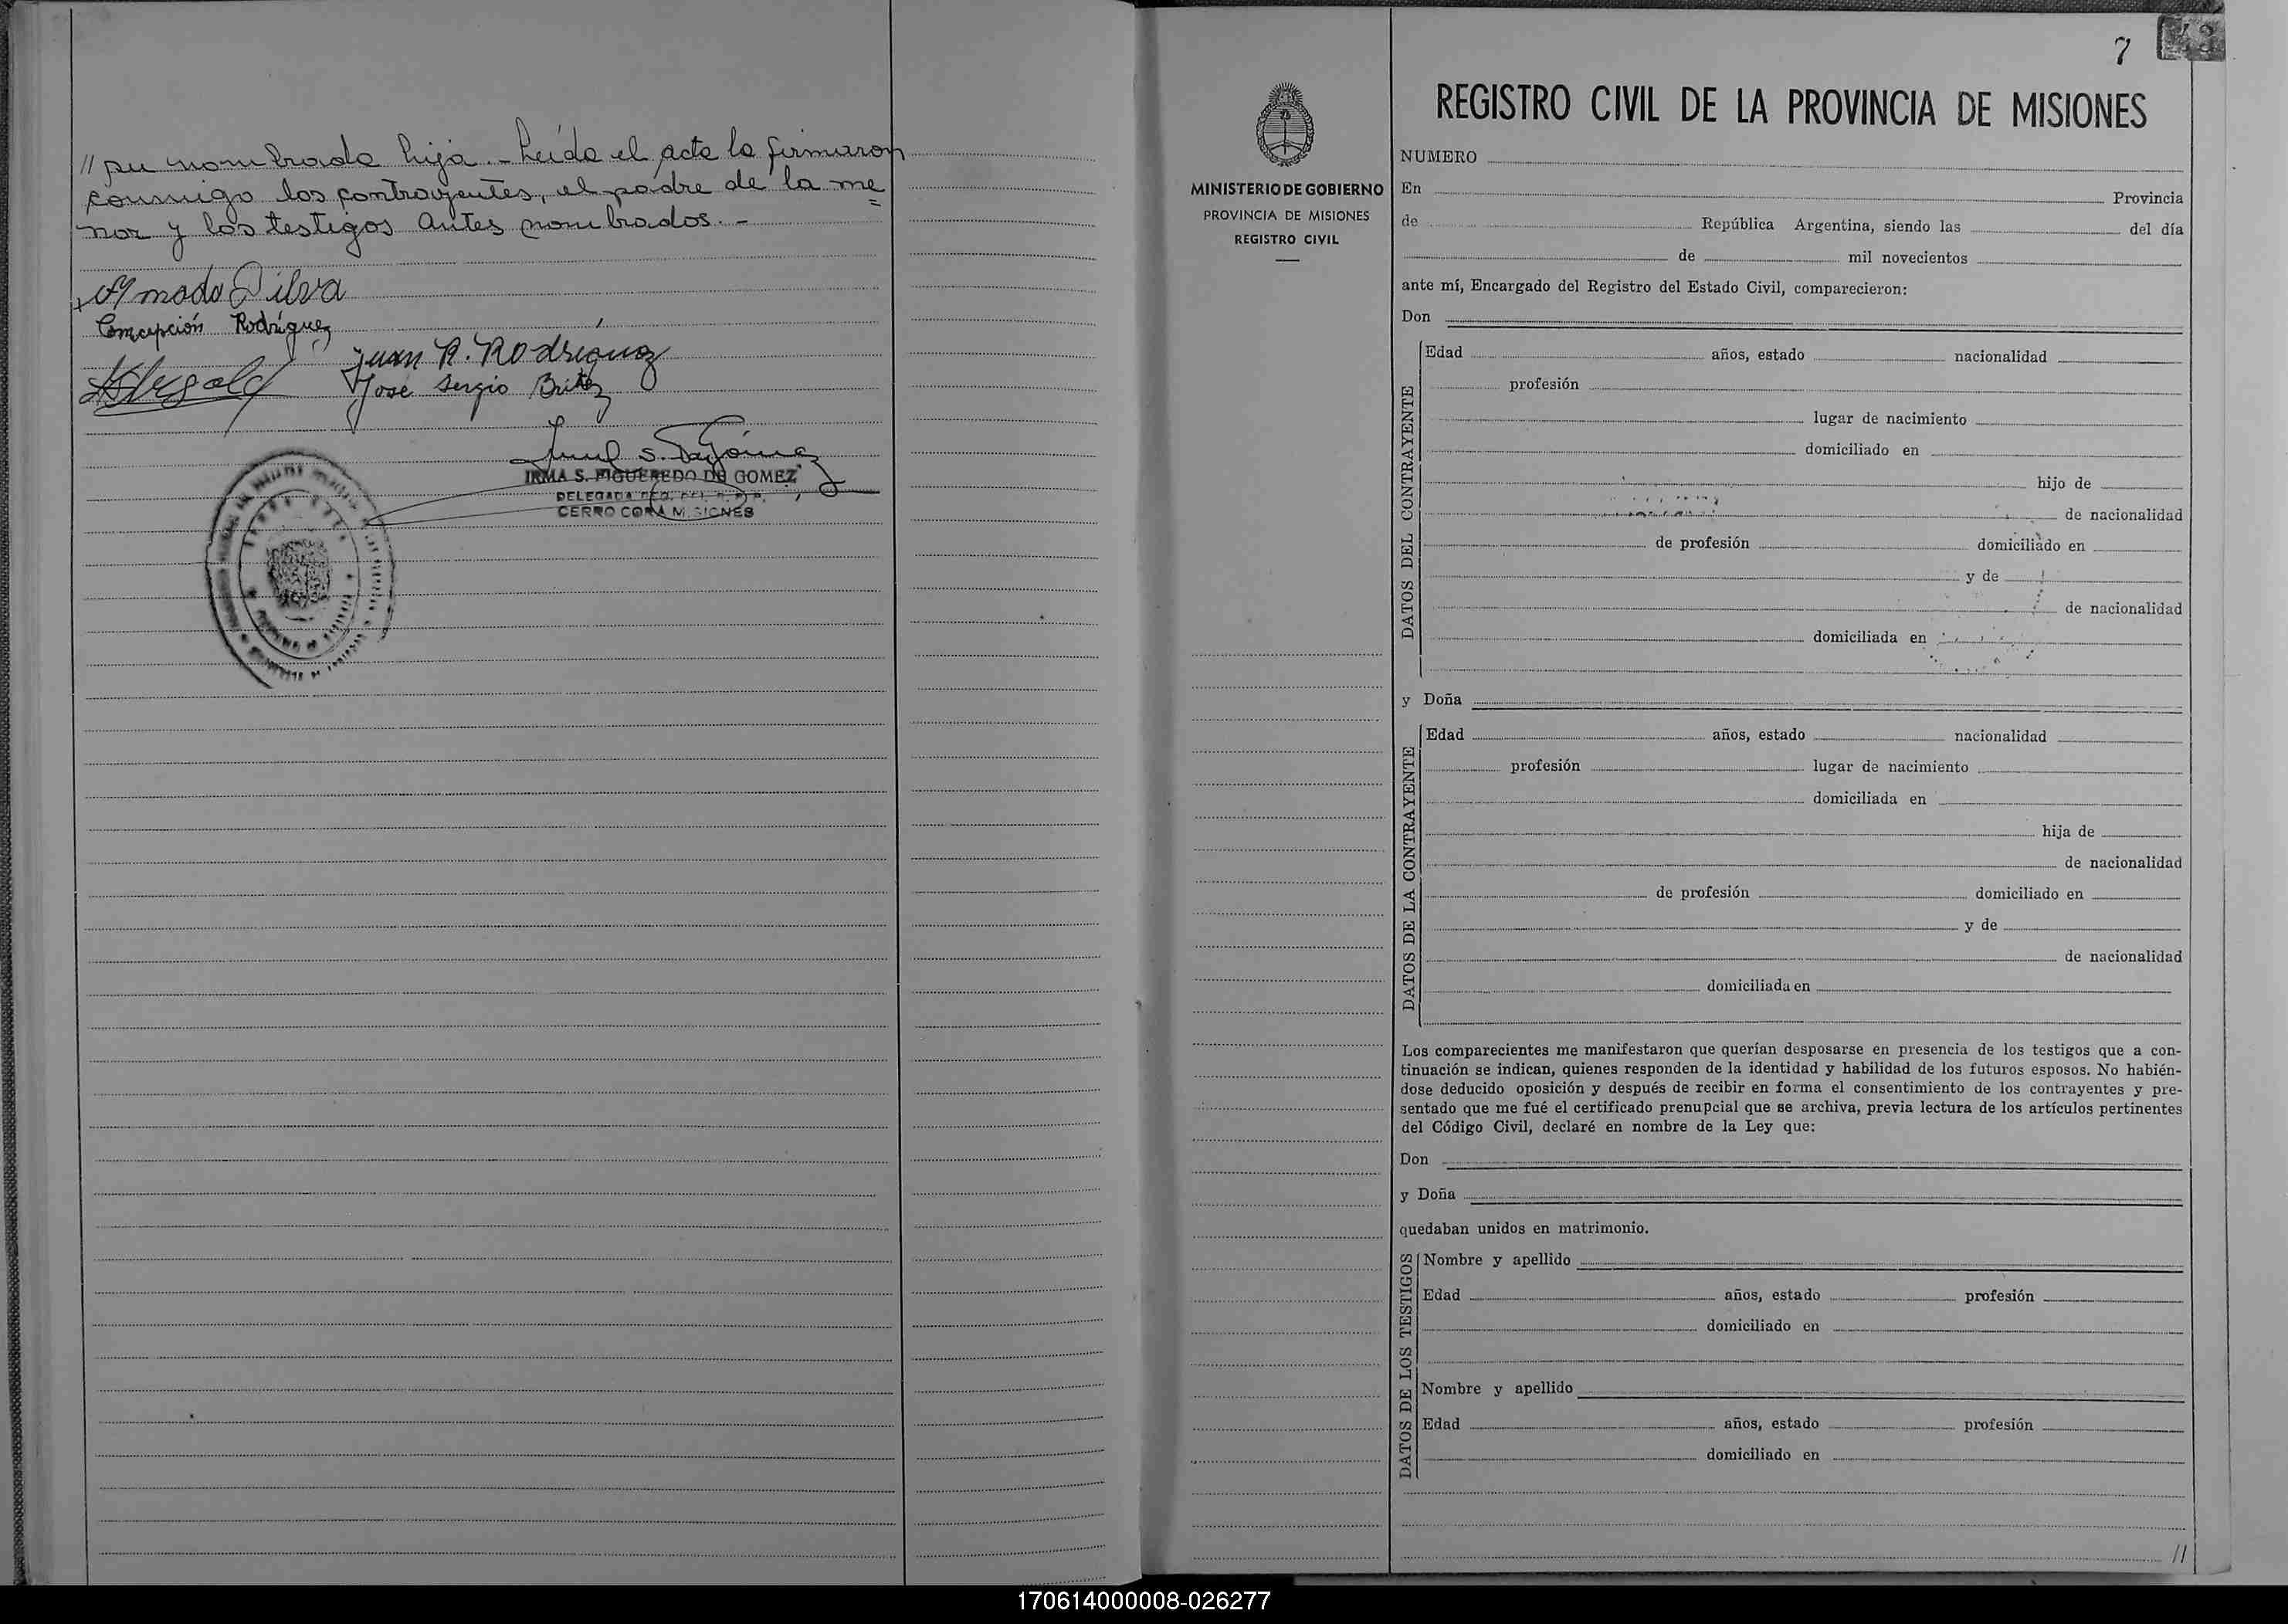 // su nombrada hija.- Leída el acta la firmaron
conmigo los contrayentes, el padre de la me=
nor y los testigos antes nombrados.-
Amado Silva
Concepción Rodríguez
Juan R. Rodríguez
José Sergio Britez
IRMA S. FIGUEREDO DE GOMEZ
DELEGADA REG.
CERRO CORA MISIONES
7
43
REGISTRO CIVIL DE LA PROVINCIA DE MISIONES
MINISTERIO DE GOBIERNO
PROVINCIA DE MISIONES
REGISTRO CIVIL
NUMERO
En Provincia
de República Argentina, siendo las del día
de mil novecientos
ante mí, Encargado del Registro del Estado Civil, comparecieron:
Don
DATOS DEL CONTRAYENTE
Edad años, estado nacionalidad
profesión
lugar de nacimiento
domiciliado en
hijo de
de nacionalidad
de profesión domiciliado en
y de
de nacionalidad
domiciliada en
y Doña
DATOS DE LA CONTRAYENTE
Edad años, estado nacionalidad
profesión lugar de nacimiento
domiciliada en
hija de
de nacionalidad
de profesión domiciliado en
y de
de nacionalidad
domiciliada en
Los comparecientes me manifestaron que querían desposarse en presencia de los testigos que a con-
tinuación se indican, quienes responden de la identidad y habilidad de los futuros esposos. No habién-
dose deducido oposición y después de recibir en forma el consentimiento de los contrayentes y pre-
sentado que me fué el certificado prenupcial que se archiva, previa lectura de los artículos pertinentes
del Código Civil, declaré en nombre de la Ley que:
Don
y Doña
quedaban unidos en matrimonio.
DATOS DE LOS TESTIGOS
Nombre y apellido
Edad años, estado profesión
domiciliado en
Nombre y apellido
Edad años, estado profesión
domiciliado en
//
170614000008-026277